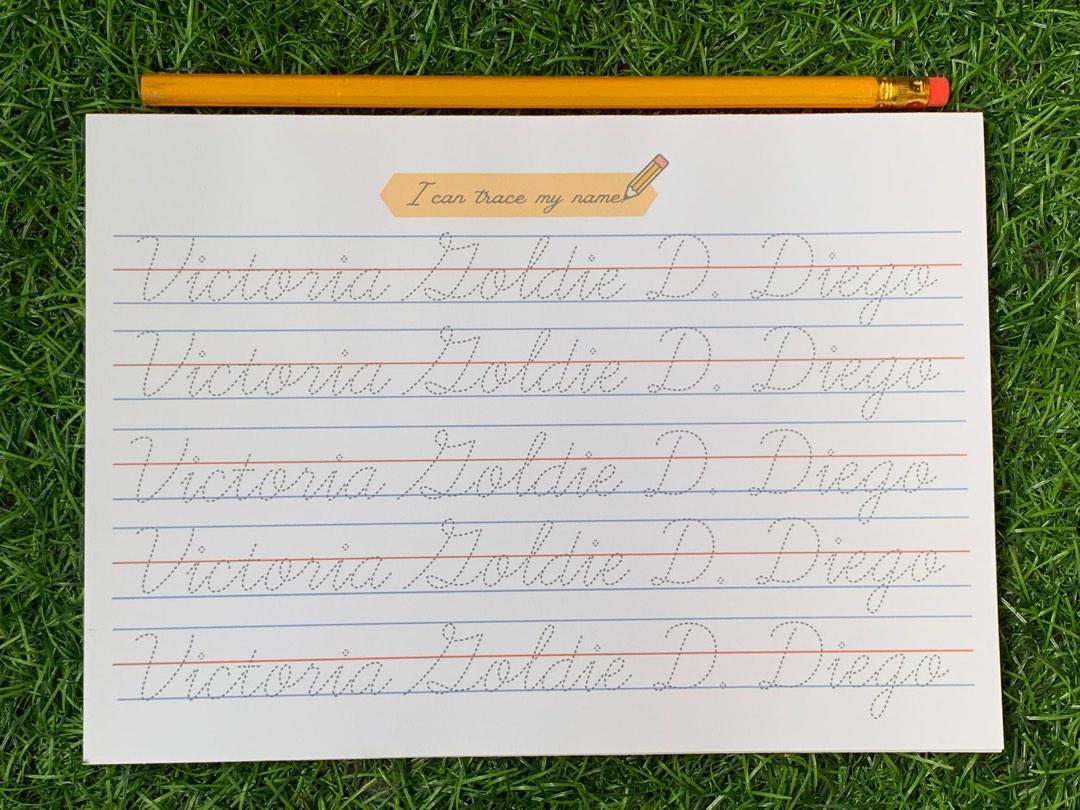 I can trace my name
Victoria Goldie D. Diego
Victoria Goldie D. Diego
Victoria Goldie D. Diego
Victoria Goldie D. Diego
Victoria Goldie D. Diego